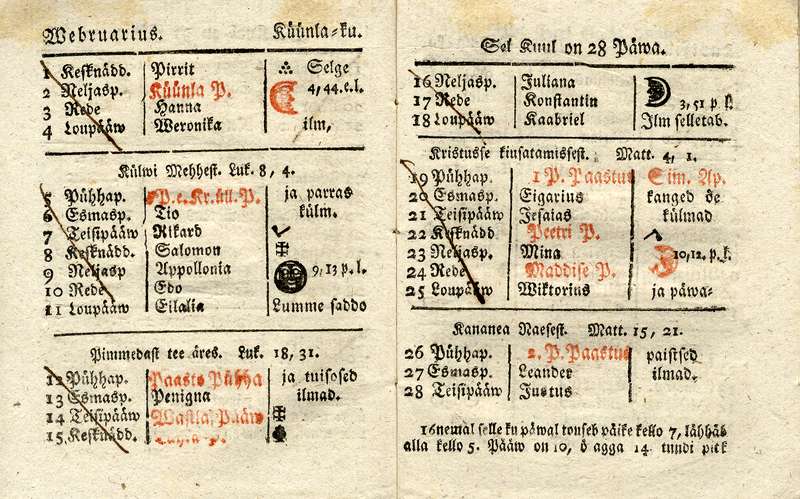 Webruarius. Küünla-ku.
1 Kesknädd. Pirrit Selge
2 Neljasp. Küünla P. 4, 44. e. l.
3 Rede Hanna
4 Loupääw Weronika ilm,
Külwi Mehhest. Luk. 8, 4.
5 Pühhap. P. e. Kr. üll. P. ja parras
6 Esmasp. Tio külm.
7 Teisipääw Rikard
8 Kesknädd. Salomon
9 Neljasp Appollonia 9, 13 p. l.
10 Rede Edo
11 Loupääw Eilalia Lumme saddo
Pimmedast tee äres. Luk. 18, 31.
12 Pühhap. Paasto Pühha ja tuisosed
13 Esmasp. Penigna ilmad.
14 Teisipääw Wastla Pääw
15 Kesknädd.
Sel Kuul on 28 Päwa.
16 Neljasp. Juliana
17 Rede Konstantin 3, 51 p l.
18 Loupääw Kaabriel Ilm selletab.
Kristusse kiusatamissest. Matt. 4, 1.
19 Pühhap. 1 P. Paastus Sim. Ap.
20 Esmasp. Eigarius kanged öe
21 Teisipääw Jesaias külmad
22 Kesknädd Peetri P.
23 Neljasp. Mina 10, 12. p. l.
24 Rede Maddise P.
25 Loupääw Wiktorius ja päwa-
Kananea Naesest. Matt. 15, 21.
26 Pühhap. 2. P. Paastus paistsed
27 Esmasp. Leander ilmad.
28 Teisipääw Justus
16nemal selle ku päwal touseb päike kello 7, lähhäb
alla kello 5. Pääw on 10, ö agga 14 tundi pitk